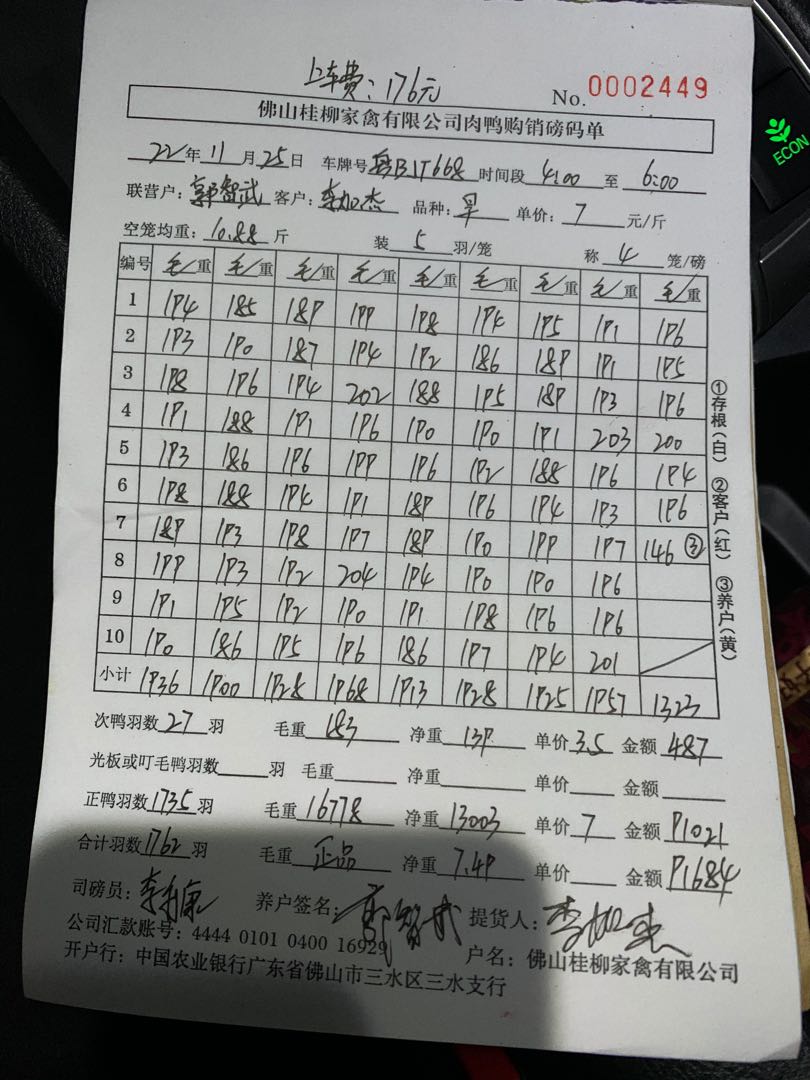 上车费：176元
No. 0002449
佛山桂柳家禽有限公司肉鸭购销磅码单
22年11月25日 车牌号粤B1T668 时间段4:00至6:00
联营户：郭智武 客户：李加杰 品种：旱 单价：7元/斤
空笼均重：10.88斤 装5羽/笼 称4笼/磅
编号 毛/重 毛/重 毛/重 毛/重 毛/重 毛/重 毛/重 毛/重 毛/重
1 194 185 189 199 198 194 195 191 196
2 193 190 187 194 192 186 189 191 195
3 198 196 194 202 188 195 189 193 196
4 191 188 191 196 190 190 191 203 200
5 193 186 196 199 196 192 188 196 194
6 198 188 194 191 189 196 194 193 196
7 189 193 198 197 189 190 199 197 146 ③
8 199 193 192 204 194 190 190 196
9 191 195 192 190 191 198 196 196
10 190 186 195 196 186 197 194 201
小计 1936 1900 1928 1968 1913 1928 1925 1957 1323
次鸭羽数27羽 毛重183 净重139 单价3.5 金额487
光板或叮毛鸭羽数 羽 毛重 净重 单价 金额
正鸭羽数1735羽 毛重16778 净重13003 单价7 金额91021
合计羽数1762羽 毛重正品 净重7.49 单价 金额91684
司磅员： 养户签名：郭智武 提货人：李加杰
公司汇款账号：4444 0101 0400 16929 户名：佛山桂柳家禽有限公司
开户行：中国农业银行广东省佛山市三水区三水支行
①存根（白） ②客户（红） ③养户（黄）
ECON